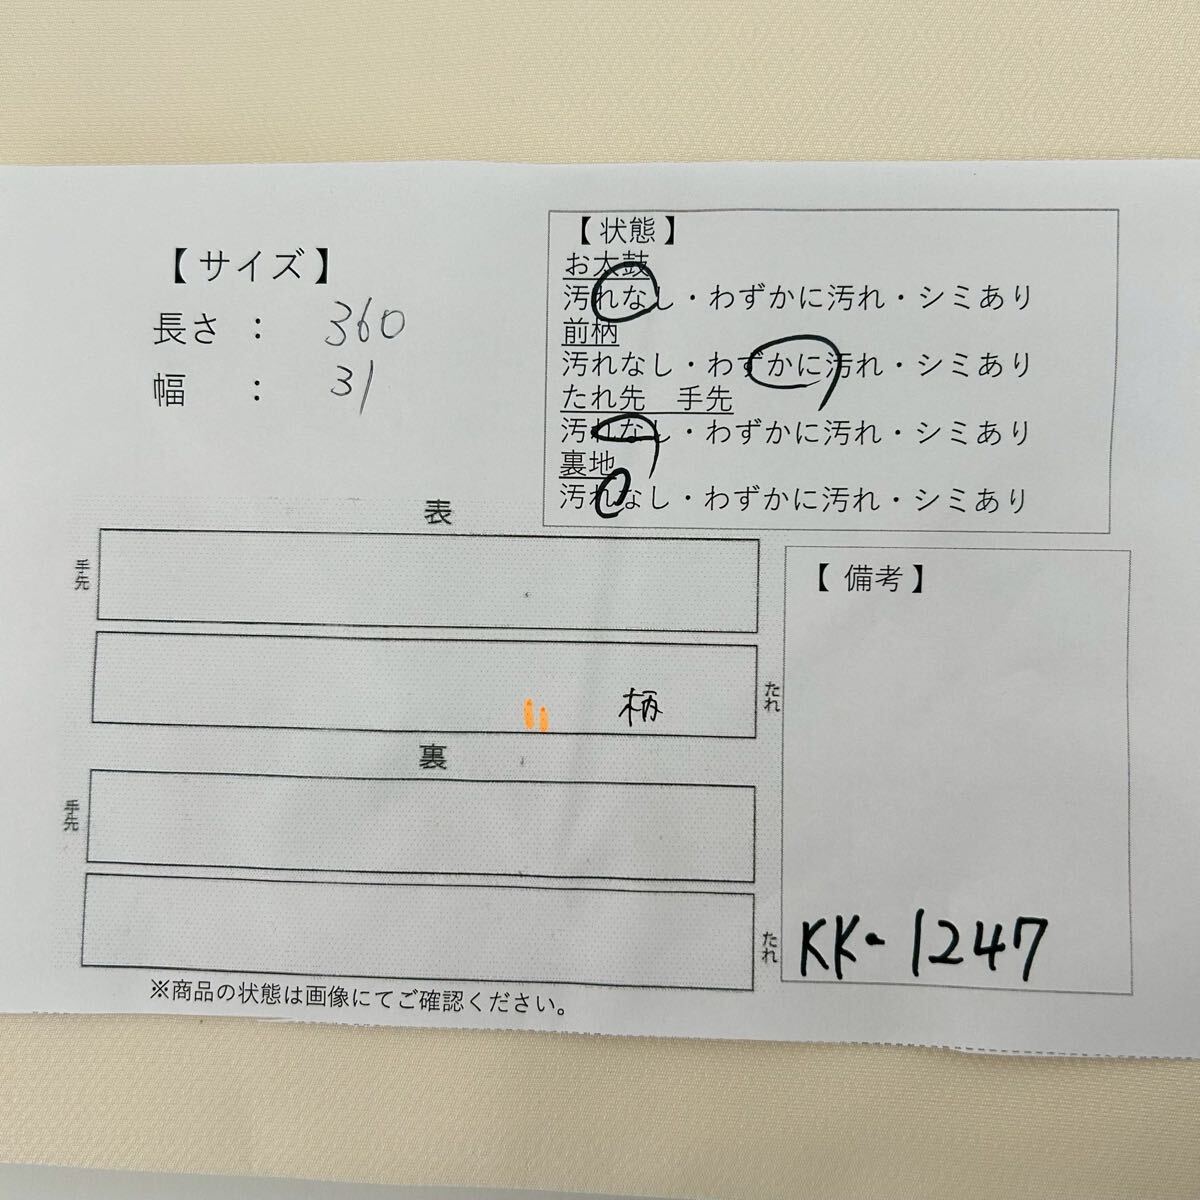 【サイズ】
長さ : 360
幅 : 31
【状態】
お太鼓
汚れなし・わずかに汚れ・シミあり
前柄
汚れなし・わずかに汚れ・シミあり
たれ先 手先
汚れなし・わずかに汚れ・シミあり
裏地
汚れなし・わずかに汚れ・シミあり
表
手先
たれ
柄
裏
手先
たれ
※商品の状態は画像にてご確認ください。
【備考】
KK-1247